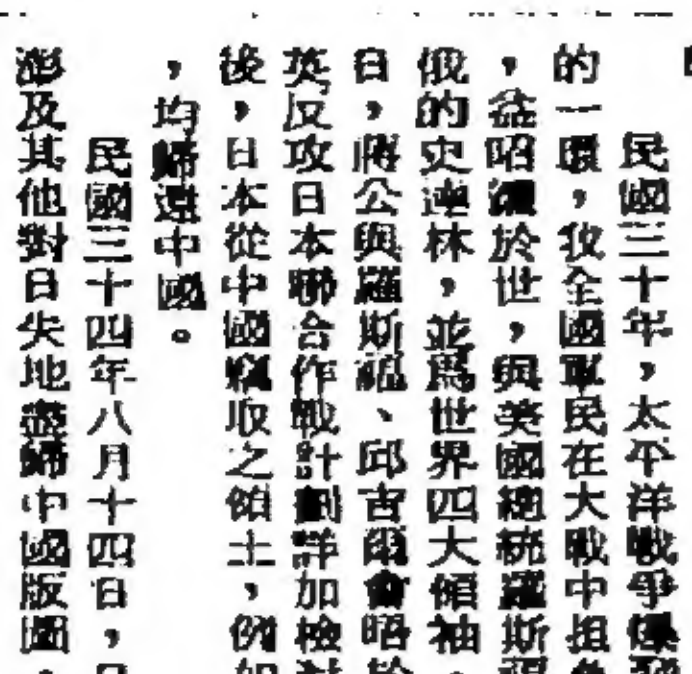 民國三十年，太平洋戰爭爆發
的一環，我全國軍民在大戰中担負
，益昭彌於世，與英國總統羅斯福
俄的史達林，並爲世界四大領袖。
日，蔣公與羅斯福、邱吉爾會昭於
英反攻日本聯合作戰計劃詳加檢討
後，日本從中國竊取之領土，例如
，均歸還中國。
民國三十四年八月十四日，日
澎及其他對日失地盡歸中國版圖，